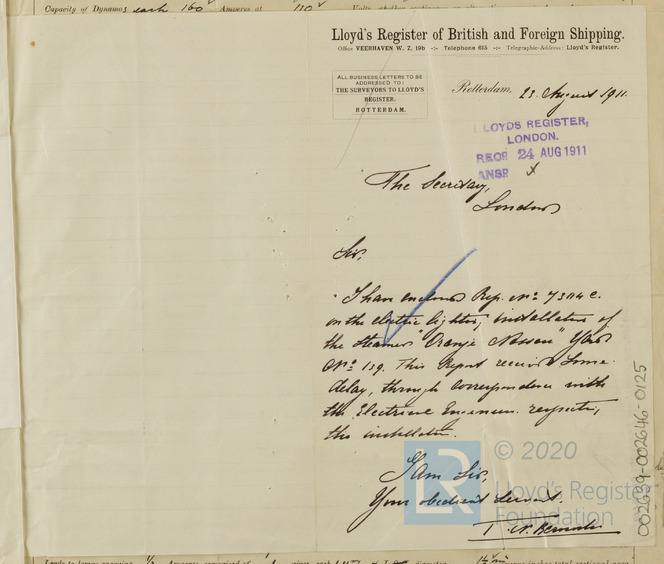 Capacity of Dynamos each 160 Amperes at 110
Lloyd's Register of British and Foreign Shipping.
Office VEERHAVEN W. Z. 19b -:- Telephone 615 -:- Telegraphic-Address: Lloyd's Register.
ALL BUSINESS LETTERS TO BE
ADDRESSED TO:
THE SURVEYORS TO LLOYD'S
REGISTER.
ROTTERDAM.
Rotterdam, 23 August 1911.
LLOYDS REGISTER,
LONDON.
RECD 24 AUG 1911
ANSR
The Secretary,
London
Sir,
I have enclosed Rep. No.
on the electric lighting installation of
the Steamer "Oranje Nassau" Yard
No. 139. This Report received some
delay, through correspondence with
the Electrical Engineers respecting
the installation.
I am Sir,
Your obedient Servant.
© 2020
LR
Lloyd's Register
Foundation
002639-002646-0125